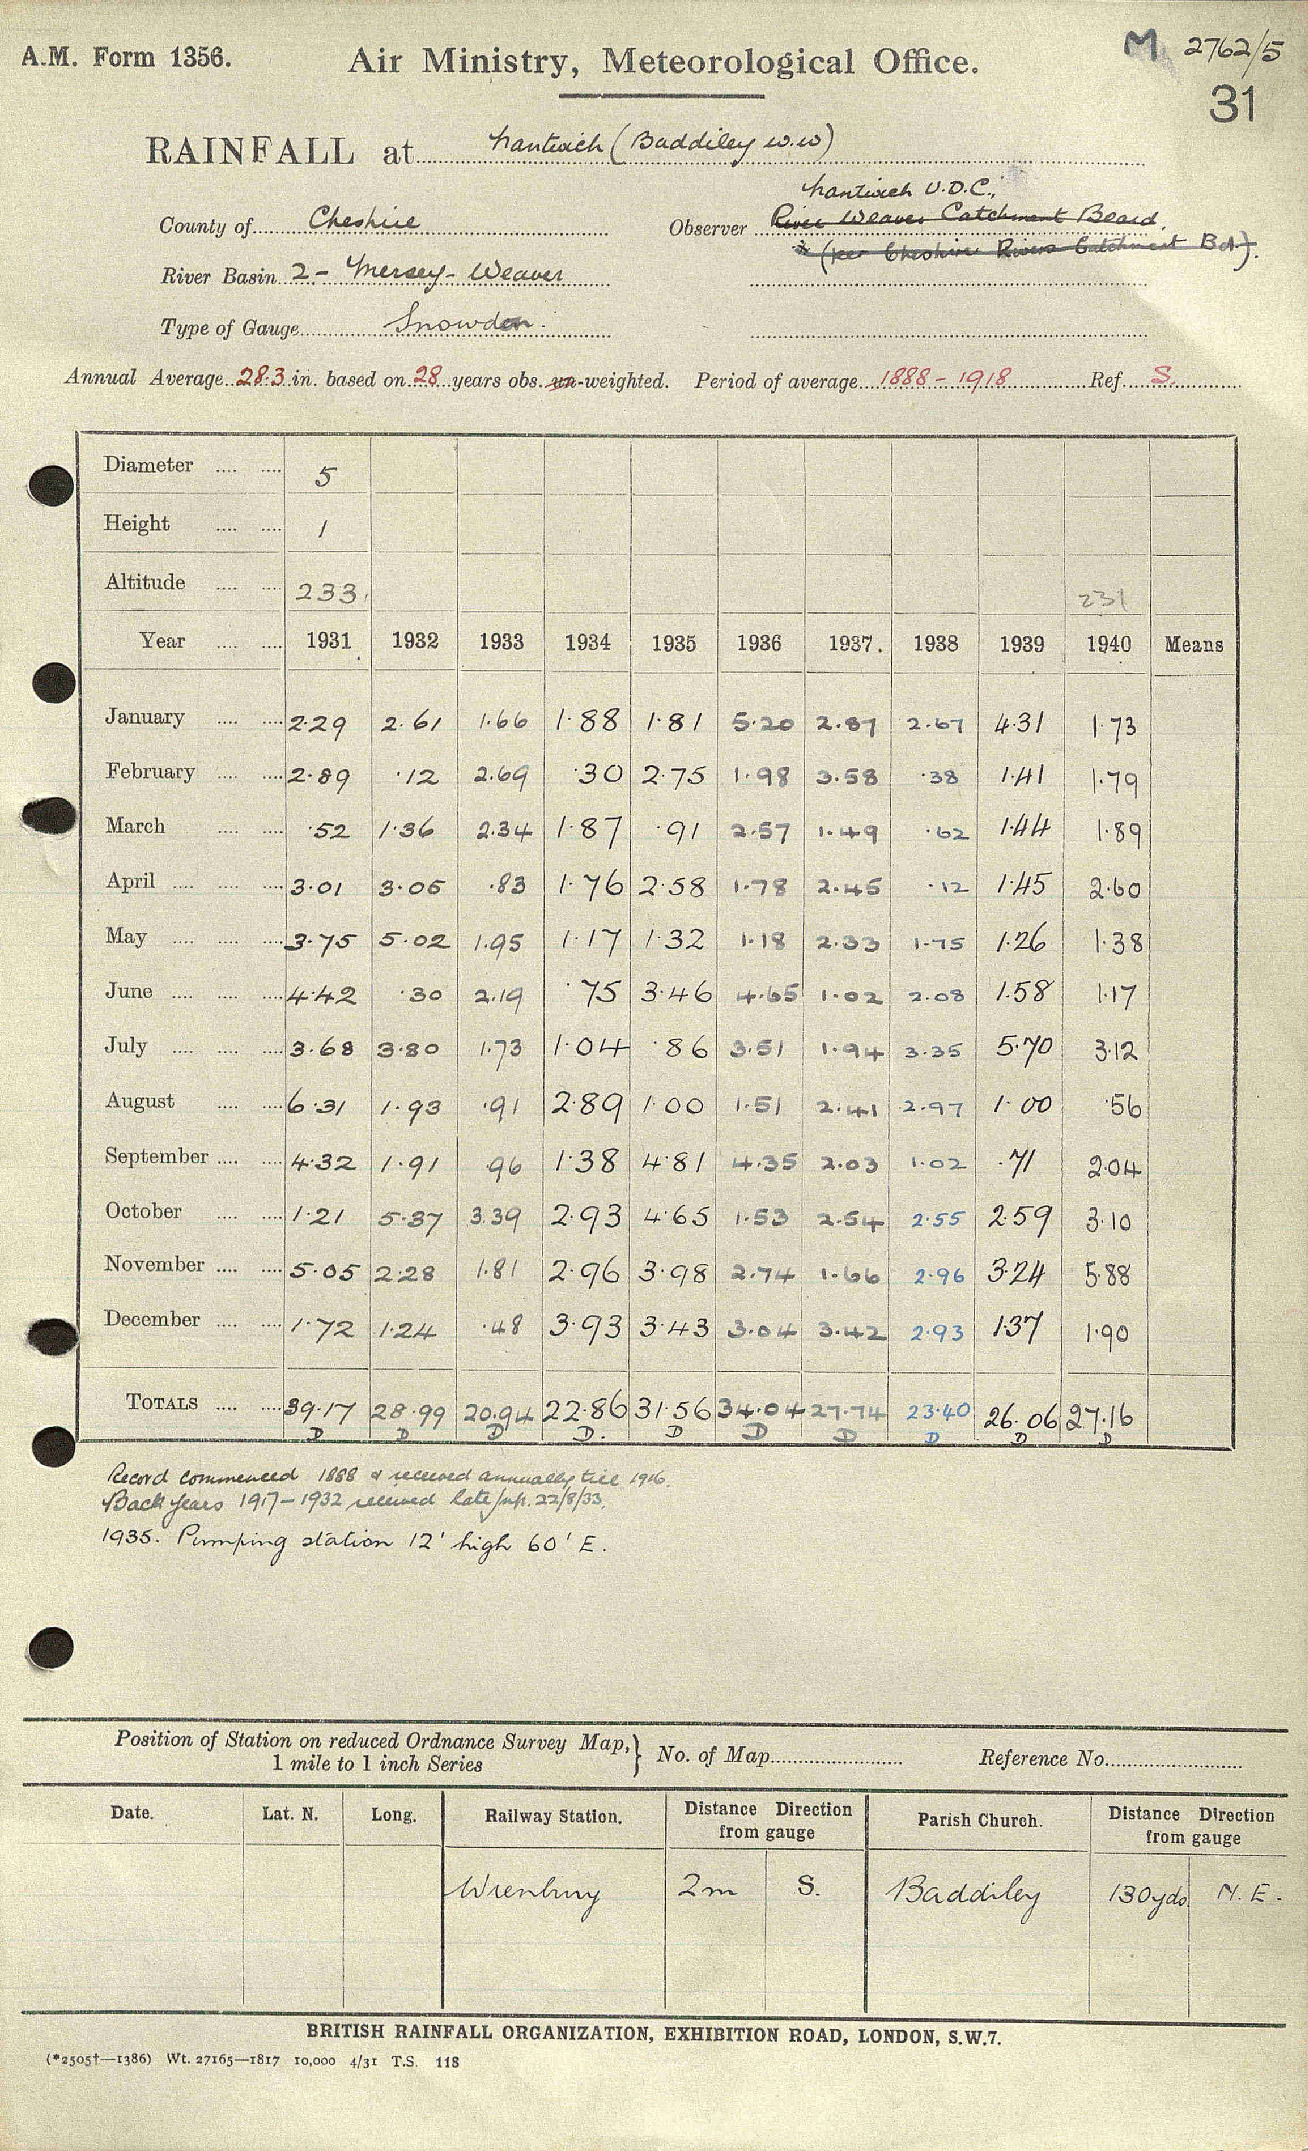 A.M. Form 1356.
Air Ministry, Meteorological Office.
M 2762/5
31
RAINFALL at Nantwich (Baddiley W.W)
Nantwich U.D.C.,
County of Cheshire Observer River Weaver Catchment Board.
(per Cheshire Rivers Catchment Bd.).
River Basin 2 - Mersey - Weaver
Type of Gauge Snowdon.
Annual Average 28.3 in. based on 28 years obs. un-weighted. Period of average 1888 - 1918 Ref. S.
Diameter 5
Height 1
Altitude 233. 231
Year 1931 1932 1933 1934 1935 1936 1937. 1938 1939 1940 Means
January 2.29 2.61 1.66 1.88 1.81 5.20 2.87 2.67 4.31 1.73
February 2.89 .12 2.69 .30 2.75 1.98 3.58 .38 1.41 1.79
March .52 1.36 2.34 1.87 .91 2.57 1.49 .62 1.44 1.89
April 3.01 3.05 .83 1.76 2.58 1.78 2.45 .12 1.45 2.60
May 3.75 5.02 1.95 1.17 1.32 1.18 2.33 1.75 1.26 1.38
June 4.42 .30 2.19 .75 3.46 4.65 1.02 2.08 1.58 1.17
July 3.68 3.80 1.73 1.04 .86 3.51 1.94 3.35 5.70 3.12
August 6.31 1.93 .91 2.89 1.00 1.51 2.41 2.97 1.00 .56
September 4.32 1.91 .96 1.38 4.81 4.35 2.03 1.02 .71 2.04
October 1.21 5.37 3.39 2.93 4.65 1.53 2.54 2.55 2.59 3.10
November 5.05 2.28 1.81 2.96 3.98 2.74 1.66 2.96 3.24 5.88
December 1.72 1.24 .48 3.93 3.43 3.04 3.42 2.93 1.37 1.90
TOTALS 39.17 28.99 20.94 22.86 31.56 34.04 27.74 23.40 26.06 27.16
D D D D. D D D D D D
Record commenced 1888 & received annually till 1916.
Back years 1917 - 1932 received 22/8/33.
1935. Pumping station 12' high 60' E.
Position of Station on reduced Ordnance Survey Map,
1 mile to 1 inch Series } No. of Map Reference No.
Date. Lat. N. Long. Railway Station. Distance Direction from gauge Parish Church. Distance Direction from gauge
Wrenbury 2m S. Baddiley 130yds. N.E.
BRITISH RAINFALL ORGANIZATION, EXHIBITION ROAD, LONDON, S.W.7.
(*2505†—1386) Wt. 27165—1817 10,000 4/31 T.S. 118